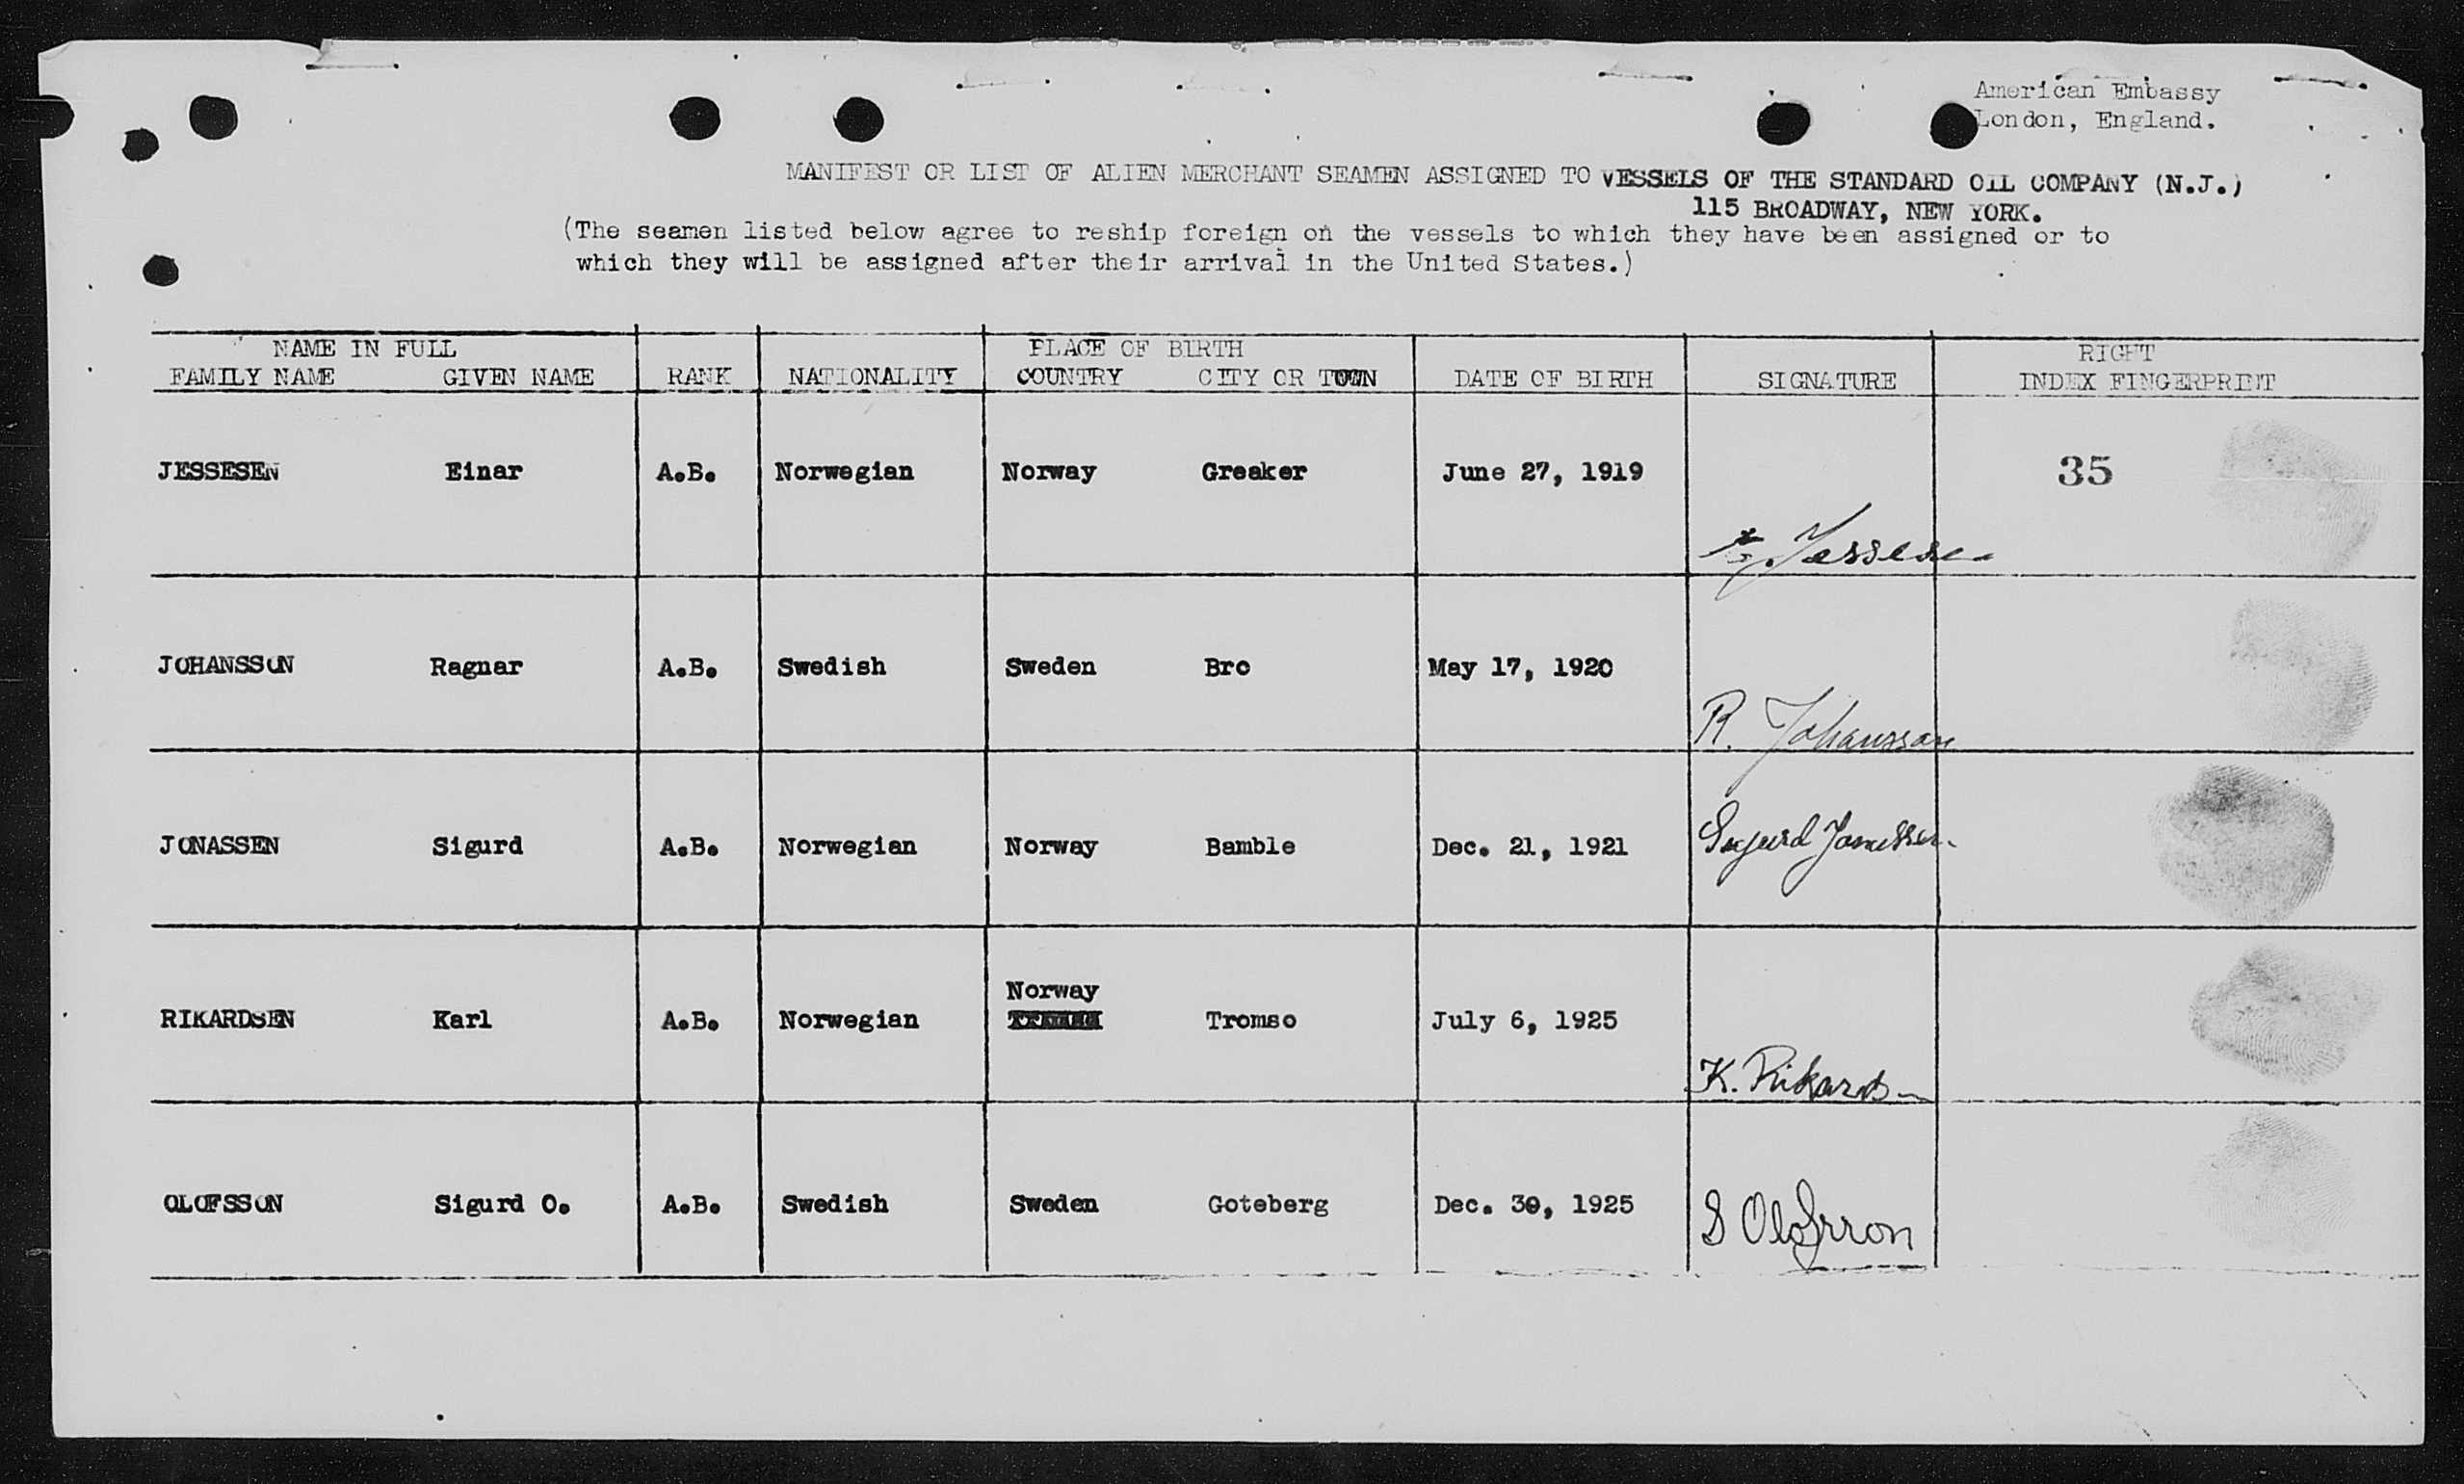 American Embassy
London, England.
MANIFEST OR LIST OF ALIEN MERCHANT SEAMEN ASSIGNED TO VESSELS OF THE STANDARD OIL COMPANY (N.J.)
115 BROADWAY, NEW YORK.
(The seamen listed below agree to reship foreign on the vessels to which they have been assigned or to
which they will be assigned after their arrival in the United States.)
NAME IN FULL PLACE OF BIRTH RIGHT
FAMILY NAME GIVEN NAME RANK NATIONALITY COUNTRY CITY OR TOWN DATE OF BIRTH SIGNATURE INDEX FINGERPRINT
JESSESEN Einar A.B. Norwegian Norway Greaker June 27, 1919 35
E. Jessesen
JOHANSSON Ragnar A.B. Swedish Sweden Bro May 17, 1920
R. Johansson
JONASSEN Sigurd A.B. Norwegian Norway Bamble Dec. 21, 1921 Sigurd Jonassen.
Norway
RIKARDSEN Karl A.B. Norwegian Tromso July 6, 1925
K. Rikardsen
OLOFSSON Sigurd O. A.B. Swedish Sweden Goteberg Dec. 30, 1925 S Olofsson